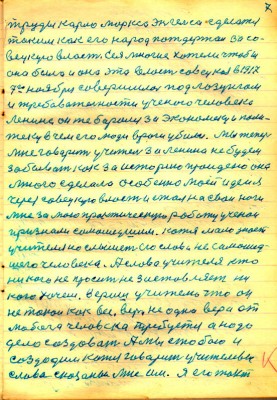 7
труды карла маркса энгелса сделали
таким как его народ поддержал за со-
вецкую власть. Ся многие хотели чтобы
она была и она эта власть совецкая в 1917
7го ноября совершилась под лозунгом
и требователности ученого человека
Ленина он же
теку в чем его люди враги убили. Мы теперь
мне говарит учител за Ленина не будем
забыват как за историю пройдено она
много сделала особенно моей идеия
через совецкую власть и стал на свои ноги
мне за мою практическую работу ученои
признали самашедшим. Хотя мало знает
учител но слышет его слова не самашед-
шего человека. А слова учителя кто
никого не просит не заставляет ни
кого ничем. Верим учител что он
не такои как все, верь не одна вера от
любого человека требуется а надо
дело создоват. А мы с тобою и
создадим хотел говарит учител эти
слова сказаны мне им. Я его такт